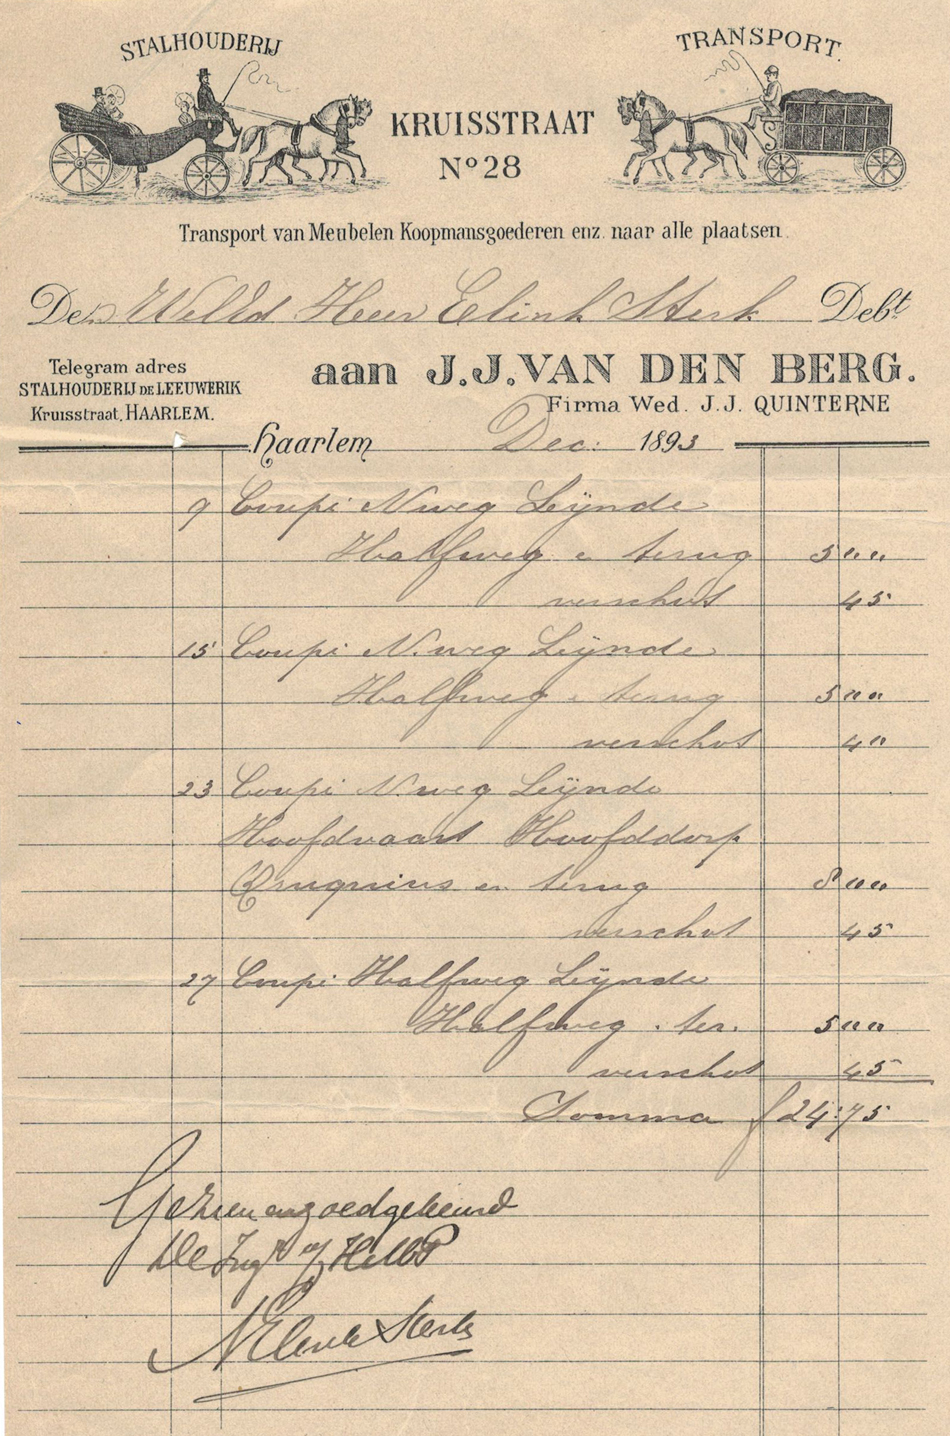 STALHOUDERIJ
TRANSPORT.
KRUISSTRAAT
No 28
Transport van Meubelen Koopmansgoederen enz. naar alle plaatsen.
Den WelEd Heer Elink Sterk Debt.
Telegram adres
STALHOUDERIJ DE LEEUWERIK
Kruisstraat, HAARLEM.
aan J.J. VAN DEN BERG.
Firma Wed. J.J. QUINTERNE
Haarlem Dec: 1893
9 Coupé N.weg Lijnde
Halfweg en terug 5 " "
verschot 45
15 Coupé N.weg Lijnde
Halfweg en terug 5 " "
verschot 4 "
23 Coupé N.weg Lijnde
Hoofdvaart Hoofddorp
Cruquius en terug 8 " "
verschot 45
27 Coupé Halfweg Lijnde
Halfweg . ter. 5 " "
verschot 45
Somma f 24:75
Gezien en goedgekeurd
De Ingr
Elink Sterk